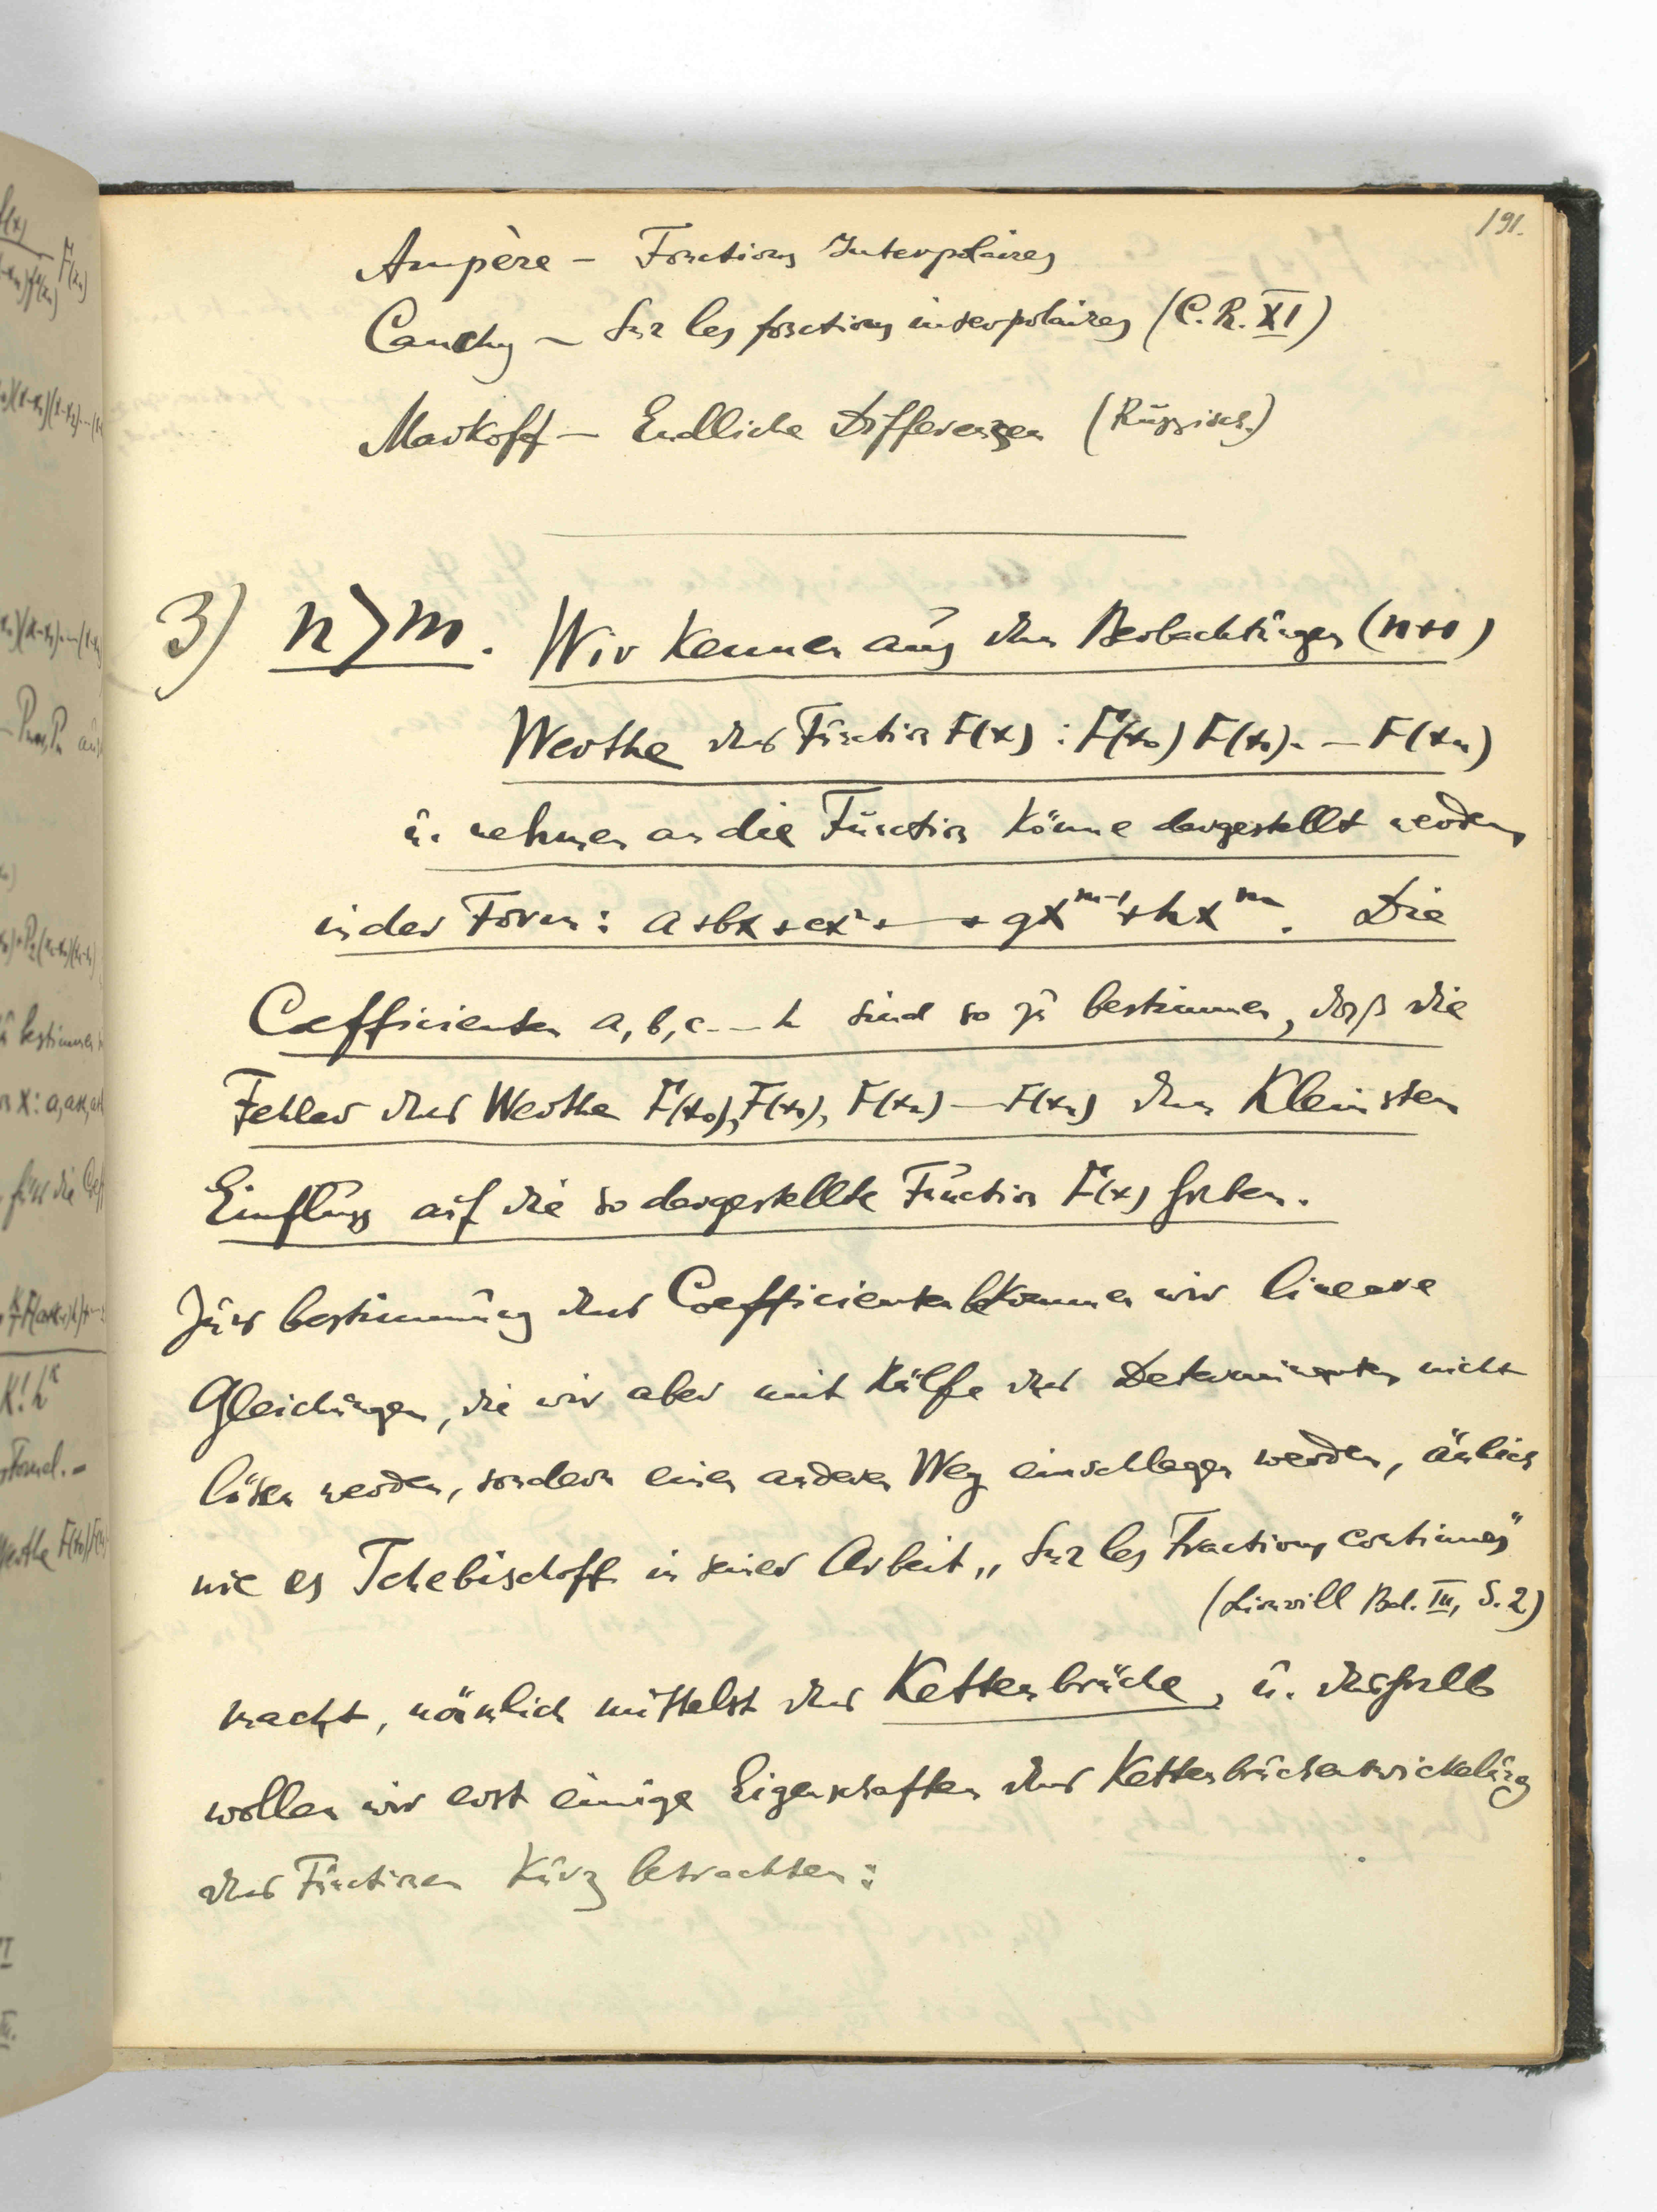 191.
Ampère – Fonctions Interpolaires
Cauchy – Sur les fonctions interpolaires (C. R. XI)
Markoff – Endliche Differenzen (Russisch.)
3) n>m. Wir kennen aus den Beobachtungen (n+1)
Werthe der Function F(x) : F(x₀) F(x₁). – F(xₙ)
u. nehmen an die Function könne dargestellt werden,
in der Form: a+bx+cx²+ — + gxᵐ⁻¹+hxᵐ. Die
Coefficienten a, b, c - - h sind so zu bestimmen, daß die
Fehler der Werthe F(x₀), F(x₁), F(x₂) — F(xₙ) den kleinsten
Einfluss auf die so dargestellte Function F(x) haben.
Zur bestimmung der Coefficienten bekommen wir lineare
Gleichungen, die wir aber mit Hülfe der Determinanten nicht
lösen werden, sondern einen anderen Weg einschlagen werden, änlich
wie es Tchebischoff in seiner Arbeit „Sur les Fractions continues"
(Liouvill Bd. III, S. 2)
macht, nämlich mittelst der Kettenbrüche, u. deshalb
wollen wir erst einige Eigenschaften der Kettenbruchentwickelung
der Functionen kurz betrachten: